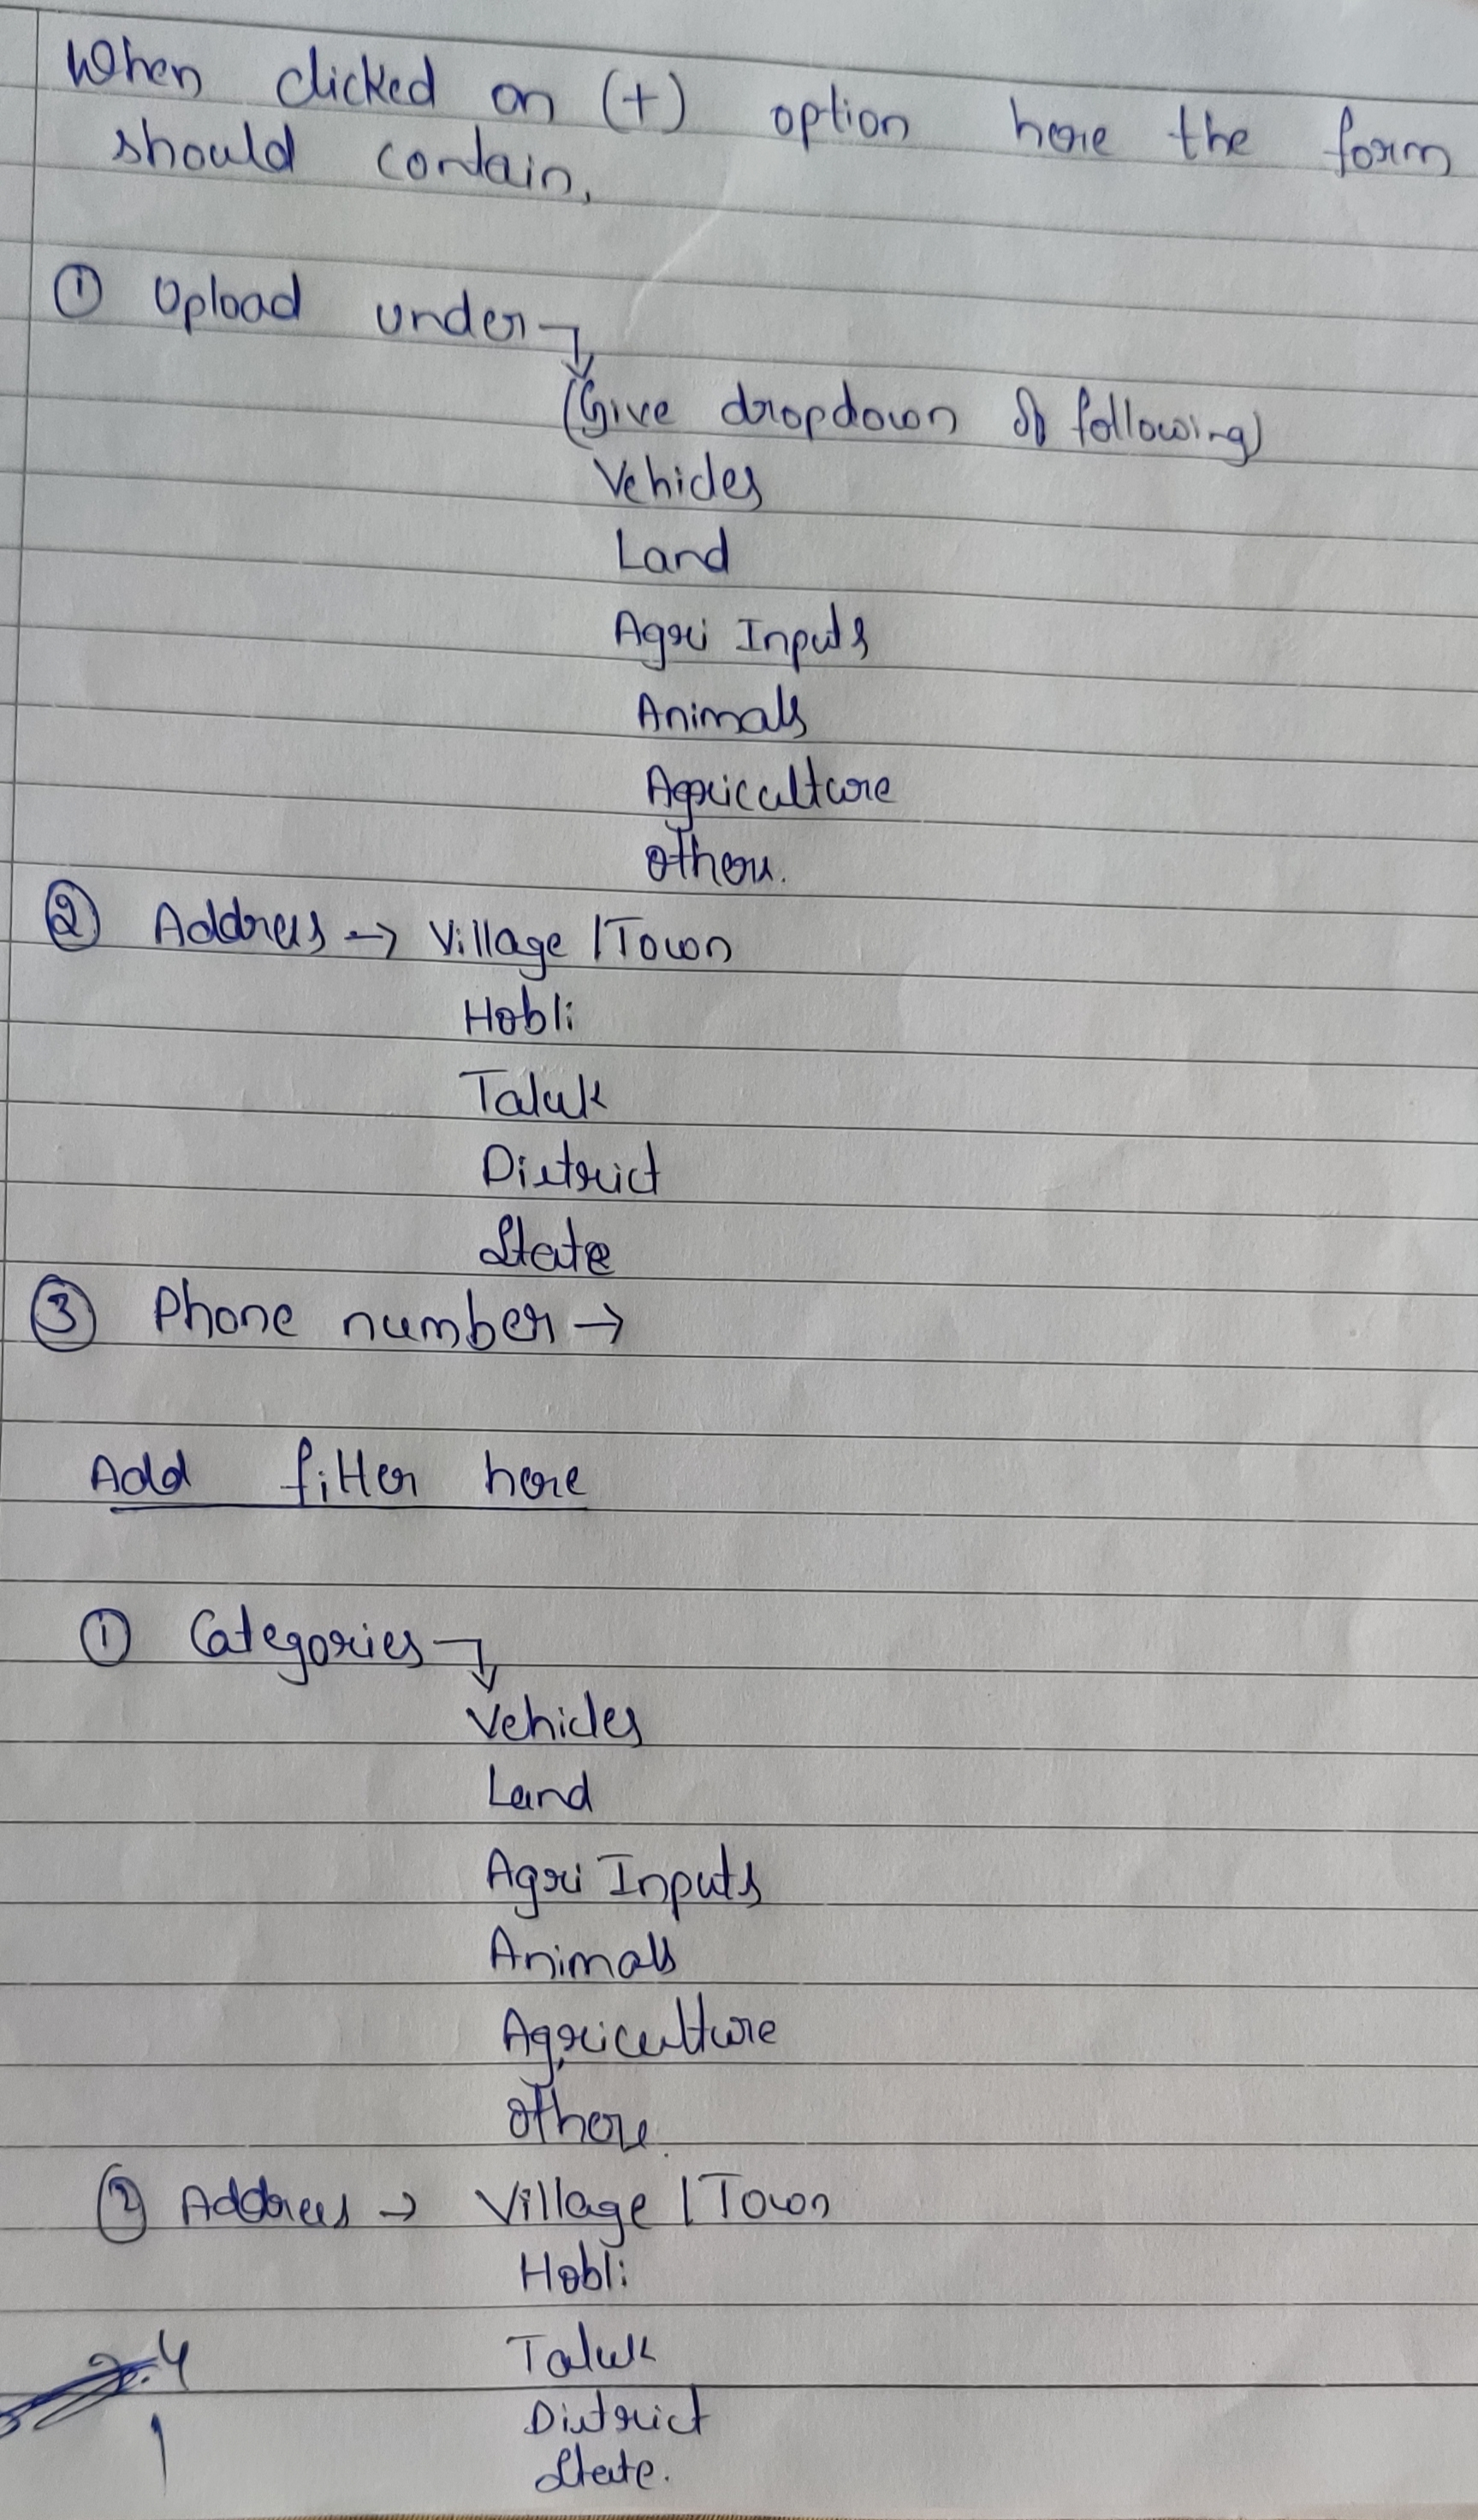 When clicked on (+) option here the form
should contain,
① Upload under →
(Give dropdown of following)
Vehicles
Land
Agri Inputs
Animals
Agriculture
Others.
② Address → Village / Town
Hobli
Taluk
District
State
③ Phone number →
Add filter here
① Categories →
Vehicles
Land
Agri Inputs
Animals
Agriculture
Others.
② Address → Village / Town
Hobli
Taluk
District
State.